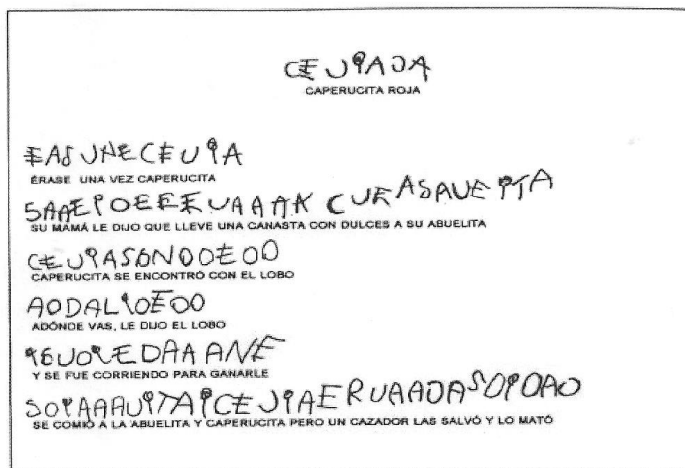 CEJIAJA
CAPERUCITA ROJA
EASUNECEUIA
ÉRASE UNA VEZ CAPERUCITA
SAAEIOEEEUAAAK CUEASAUEPTA
SU MAMÁ LE DIJO QUE LLEVE UNA CANASTA CON DULCES A SU ABUELITA
CEUIASONDOEOO
CAPERUCITA SE ENCONTRÓ CON EL LOBO
AODALIOEOO
ADÓNDE VAS, LE DIJO EL LOBO
IEUOIEDAAANE
Y SE FUE CORRIENDO PARA GANARLE
SOIAAAUITAICEJIAERUAAOASOIOAO
SE COMIÓ A LA ABUELITA Y CAPERUCITA PERO UN CAZADOR LAS SALVÓ Y LO MATÓ